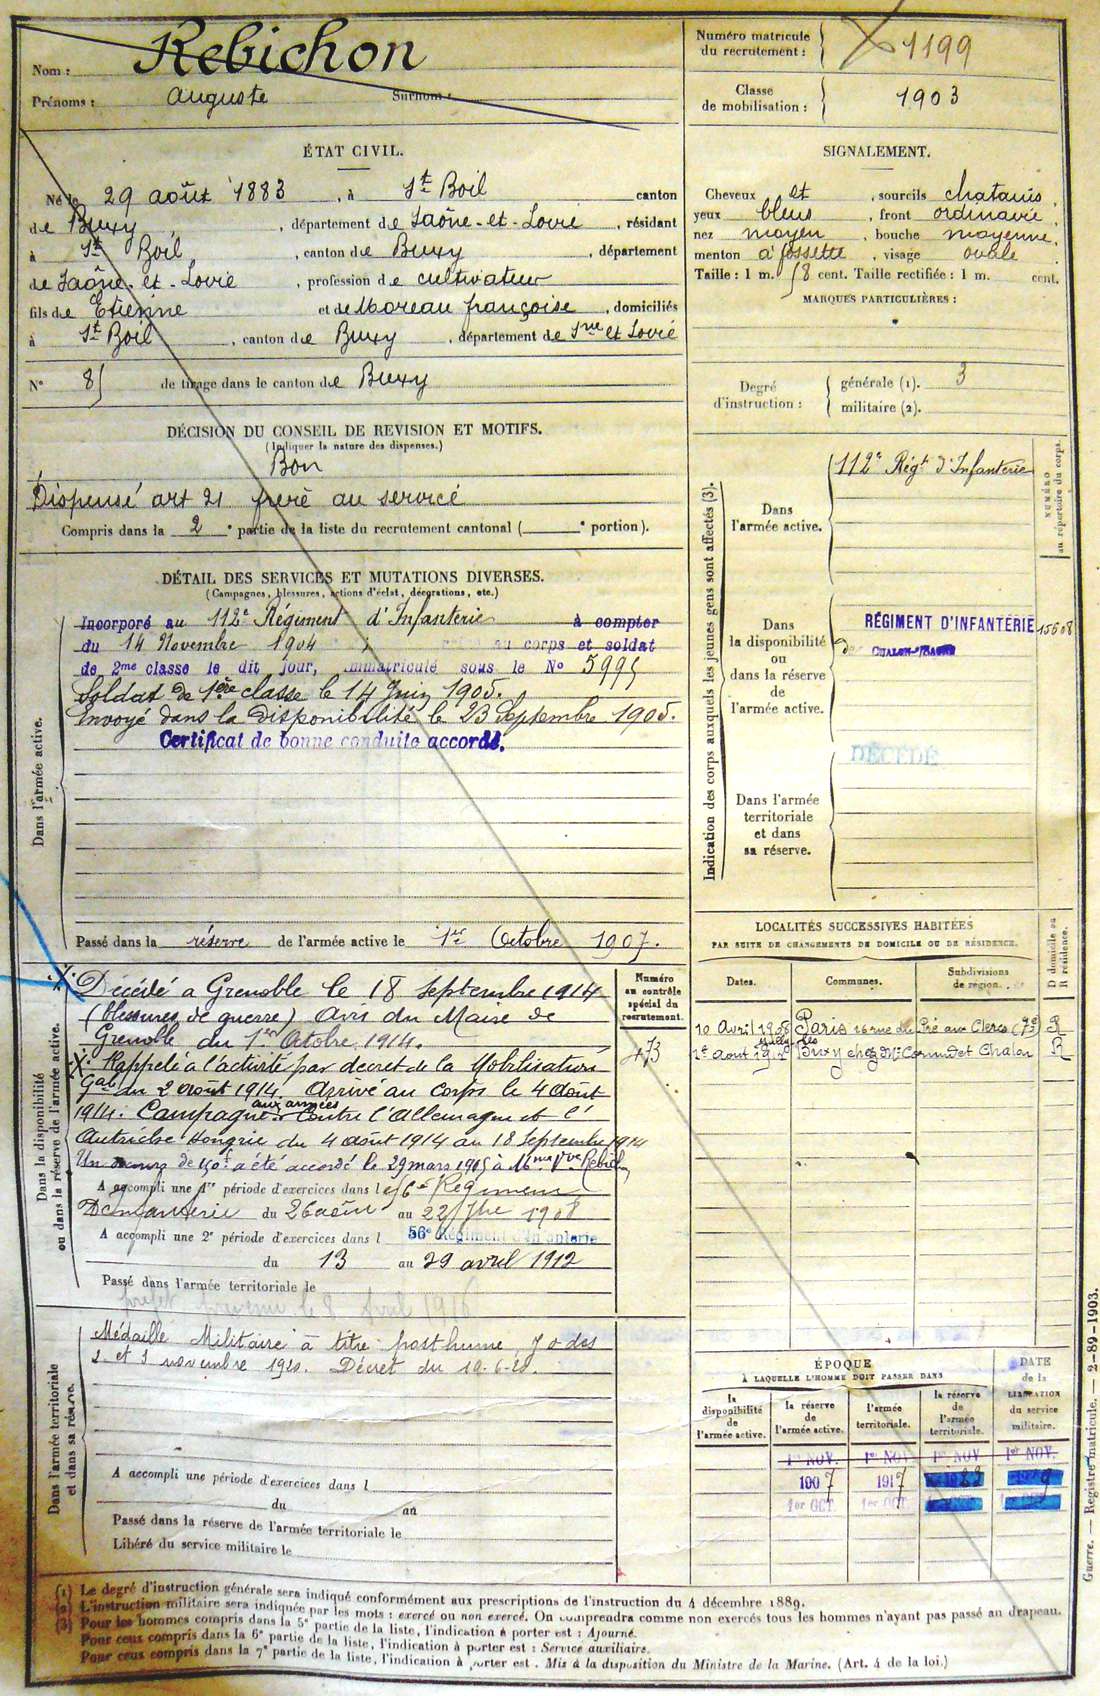 Nom : Rebichon
Prénoms : Auguste Surnom :
Numéro matricule du recrutement : 1199
Classe de mobilisation : 1903
ÉTAT CIVIL.
Né le 29 août 1883, à St Boil canton
de Buxy, département de Saône-et-Loire, résidant
à St Boil, canton de Buxy, département
de Saône-et-Loire, profession de cultivateur
fils de Etienne et de Moreau françoise, domiciliés
à St Boil, canton de Buxy, département de Sne et Loire
N° 85 de tirage dans le canton de Buxy
SIGNALEMENT.
Cheveux et, sourcils chatains,
yeux bleus, front ordinaire
nez moyen, bouche moyenne,
menton à fossette, visage ovale
Taille : 1 m. 58 cent. Taille rectifiée : 1 m. cent.
MARQUES PARTICULIÈRES :
Degré d'instruction : générale (1). 3
militaire (2).
DÉCISION DU CONSEIL DE REVISION ET MOTIFS.
(Indiquer la nature des dispenses.)
Bon
Dispensé art 21 frère au service
Compris dans la 2e partie de la liste du recrutement cantonal ( e portion).
DÉTAIL DES SERVICES ET MUTATIONS DIVERSES.
(Campagnes, blessures, actions d'éclat, décorations, etc.)
Dans l'armée active.
Incorporé au 112e Régiment d'Infanterie à compter
du 14 Novembre 1904 au corps et soldat
de 2me classe le dit jour, immatriculé sous le N° 5995
Soldat de 1ère classe le 14 Juin 1905.
Envoyé dans la disponibilité le 23 Septembre 1905.
Certificat de bonne conduite accordé.
Passé dans la réserve de l'armée active le 1er Octobre 1907.
Indication des corps auxquels les jeunes gens sont affectés (3).
NUMÉRO au répertoire du corps.
Dans l'armée active.
112e Régt d'Infanterie
Dans la disponibilité ou dans la réserve de l'armée active.
RÉGIMENT D'INFANTERIE 15608
de CHALON-S/SAONE
Dans l'armée territoriale et dans sa réserve.
DÉCÉDÉ
LOCALITÉS SUCCESSIVES HABITÉES
PAR SUITE DE CHANGEMENTS DE DOMICILE OU DE RÉSIDENCE.
Dates. Communes. Subdivisions de région. D domicile ou R résidence.
10 Avril 1908 Paris 26 rue du Pré aux Clercs R
1er août Buxy chez Mr Chalon R
Dans la disponibilité ou dans la réserve de l'armée active.
Numéro au contrôle spécial du recrutement.
473
Décédé à Grenoble le 18 septembre 1914
(blessures de guerre) Avis du Maire de
Grenoble du 1er Octobre 1914.
Rappelé à l'activité par décret de la Mobilisation
Gale du 2 août 1914. Arrivé au corps le 4 août
1914. Campagne aux armées Contre l'Allemagne et l'
Autriche Hongrie du 4 août 1914 au 18 Septembre 1914
Un secours de 150f a été accordé le 29 mars 1915 à Mme Vve Rebichon
A accompli une 1re période d'exercices dans le 56e Régiment
D'infanterie du 26 août au 22 7bre 1908
A accompli une 2e période d'exercices dans l 56e Régiment d'Infanterie
du 13 au 29 avril 1912
Passé dans l'armée territoriale le
préfet prévenu le 8 Avril 1916
Dans l'armée territoriale et dans sa réserve.
Médaille Militaire à titre posthume, Jo des
2 et 3 novembre 1920. Décret du 19-6-20.
A accompli une période d'exercices dans l
du au
Passé dans la réserve de l'armée territoriale le
Libéré du service militaire le
ÉPOQUE
À LAQUELLE L'HOMME DOIT PASSER DANS
la disponibilité de l'armée active. la réserve de l'armée active. l'armée territoriale. la réserve de l'armée territoriale.
DATE de la LIBÉRATION du service militaire.
1er NOV. 1er NOV. 1er NOV. 1er NOV.
1907 1917
1er OCT. 1er OCT.
Guerre. — Registre matricule. — 2-89-1903.
(1) Le degré d'instruction générale sera indiqué conformément aux prescriptions de l'instruction du 4 décembre 1889.
(2) L'instruction militaire sera indiquée par les mots : exercé ou non exercé. On comprendra comme non exercés tous les hommes n'ayant pas passé au drapeau.
(3) Pour les hommes compris dans la 5e partie de la liste, l'indication à porter est : Ajourné.
Pour ceux compris dans la 6e partie de la liste, l'indication à porter est : Service auxiliaire.
Pour ceux compris dans la 7e partie de la liste, l'indication à porter est . Mis à la disposition du Ministre de la Marine. (Art. 4 de la loi.)